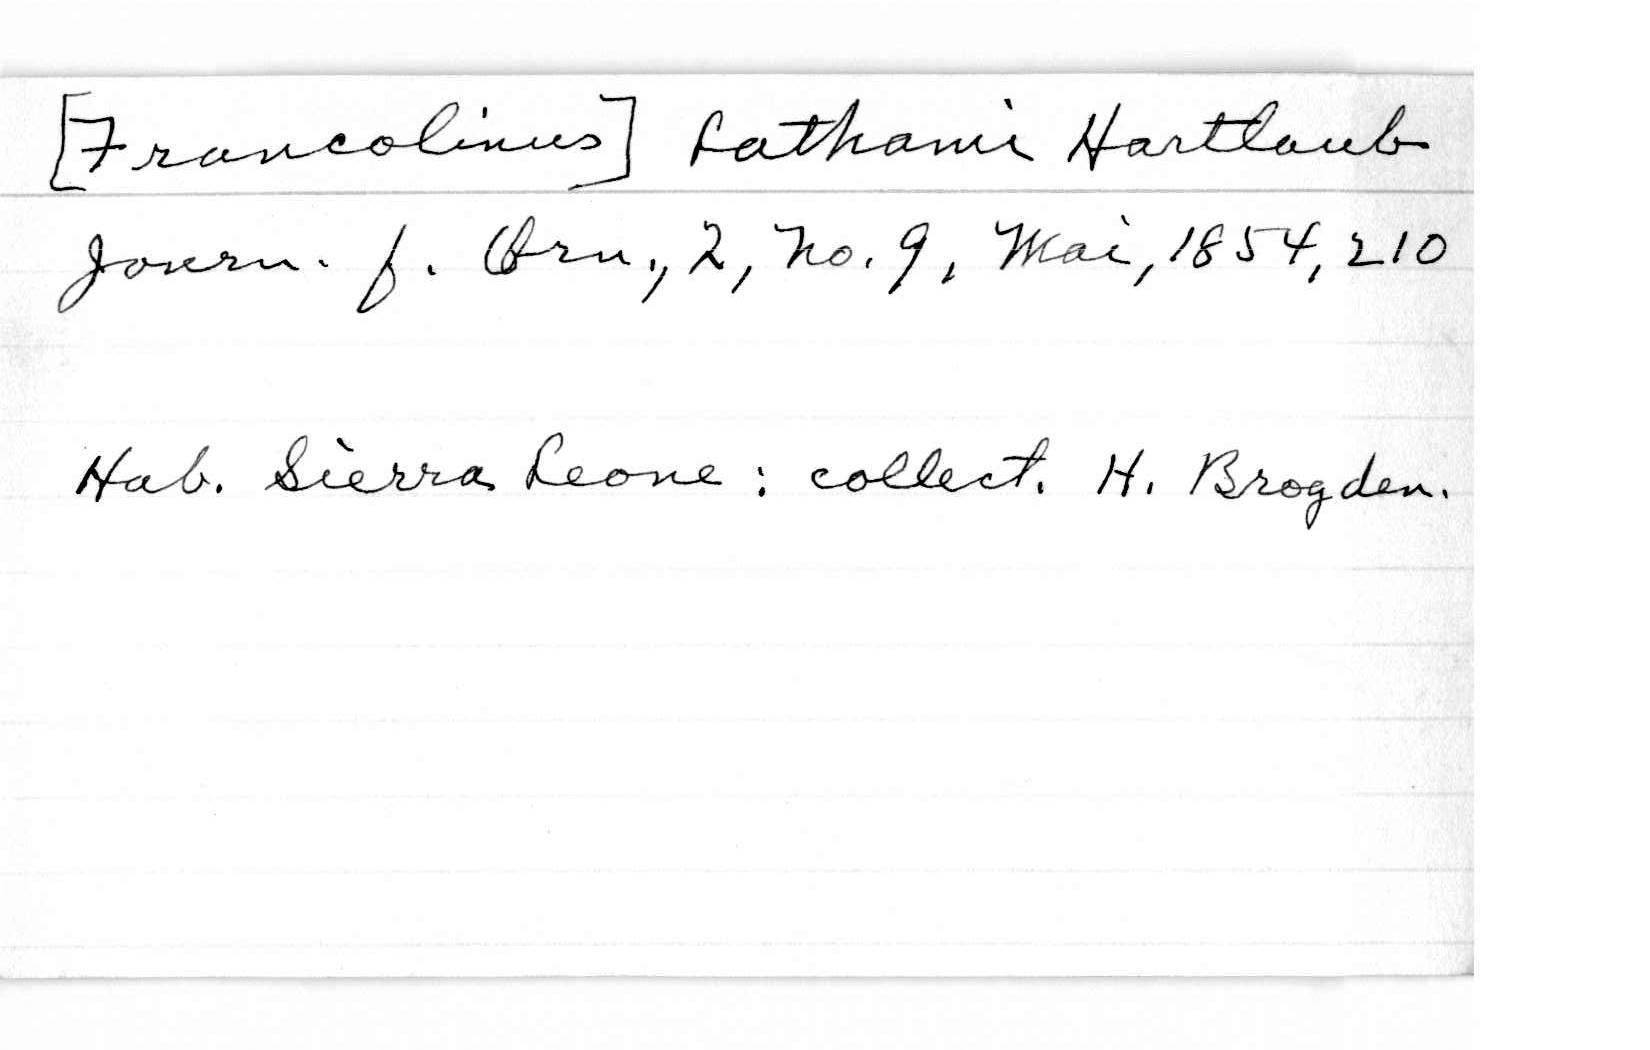 [Francolinus] Lathami Hartlaub
Journ. f. Orn., 2, No. 9, Mai, 1854, 210
Hab. Sierra Leone : collect. H. Brogden.